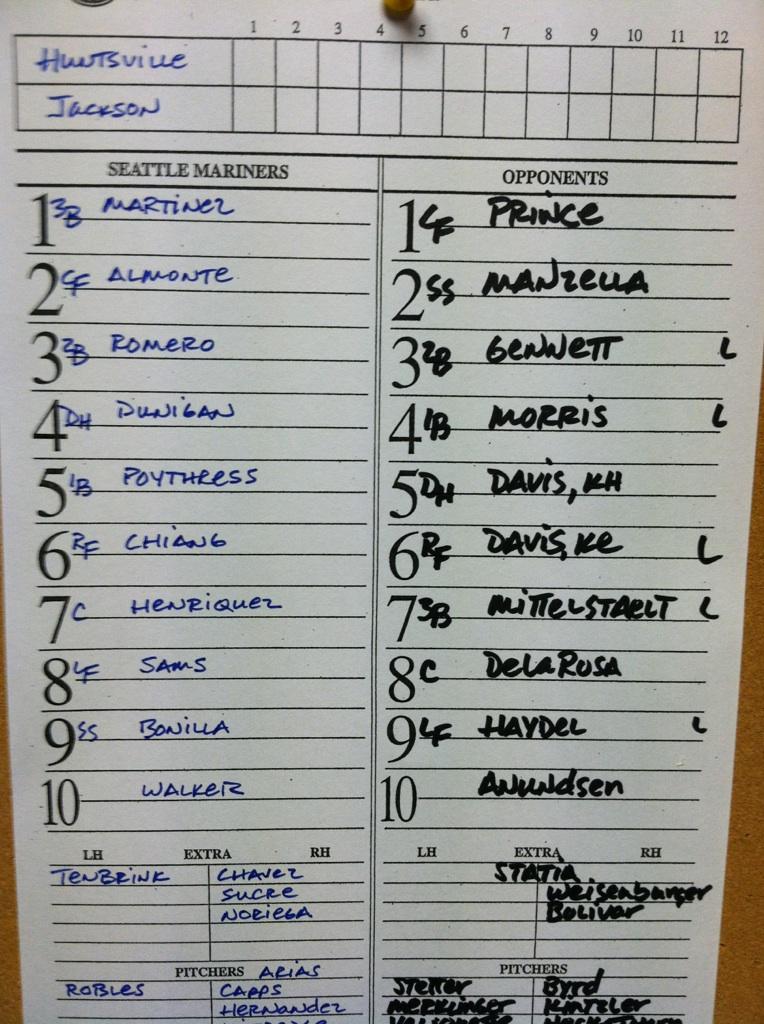 1 2 3 4 5 6 7 8 9 10 11 12
Huntsville
Jackson
SEATTLE MARINERS
1 3B MARTINEZ
2 CF ALMONTE
3 2B ROMERO
4 DH DUNIGAN
5 1B POYTHRESS
6 RF CHIANG
7 C HENRIQUEZ
8 LF SAMS
9 SS BONILLA
10 WALKER
LH EXTRA RH
TENBRINK CHAVEZ
SUCRE
NORIEGA
PITCHERS ARIAS
ROBLES CAPPS
HERNANDEZ
OPPONENTS
1 CF PRINCE
2 SS MANZELLA
3 2B GENNETT L
4 1B MORRIS L
5 DH DAVIS, KH
6 RF DAVIS, KE L
7 3B MITTELSTAEDT L
8 C DeLaRosa
9 LF HAYDEL L
10 Anundsen
LH EXTRA RH
STATIA
Weisenburger
Bolivar
PITCHERS
Stetter Byrd
Merklinger Kintzler